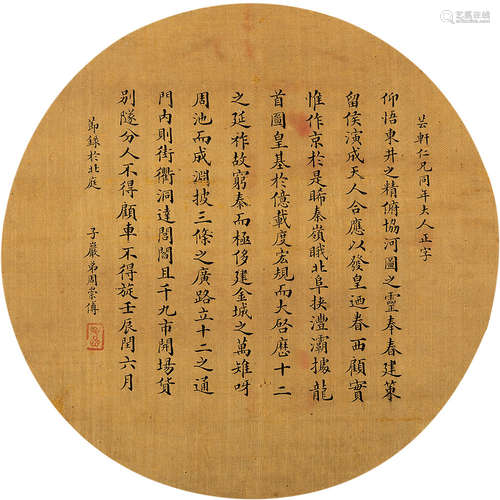 芸軒仁兄同年大人正字
仰悟東井之精俯協河圖之靈奉春建策
留侯演成天人合應以發皇迺眷西顧實
惟作京於是睎秦嶺睋北阜挾灃灞據龍
首圖皇基於億載度宏規而大啓歷十二
之延祚故窮秦而極侈建金城之萬雉呀
周池而成淵披三條之廣路立十二之通
門內則街衢洞達閭閻且千九市開場貨
別隧分人不得顧車不得旋壬辰閏六月
節錄於北庭 子巖弟周崇傅